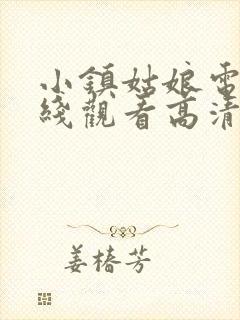 小鎮姑娘電
綫觀看高清
姜椿芳